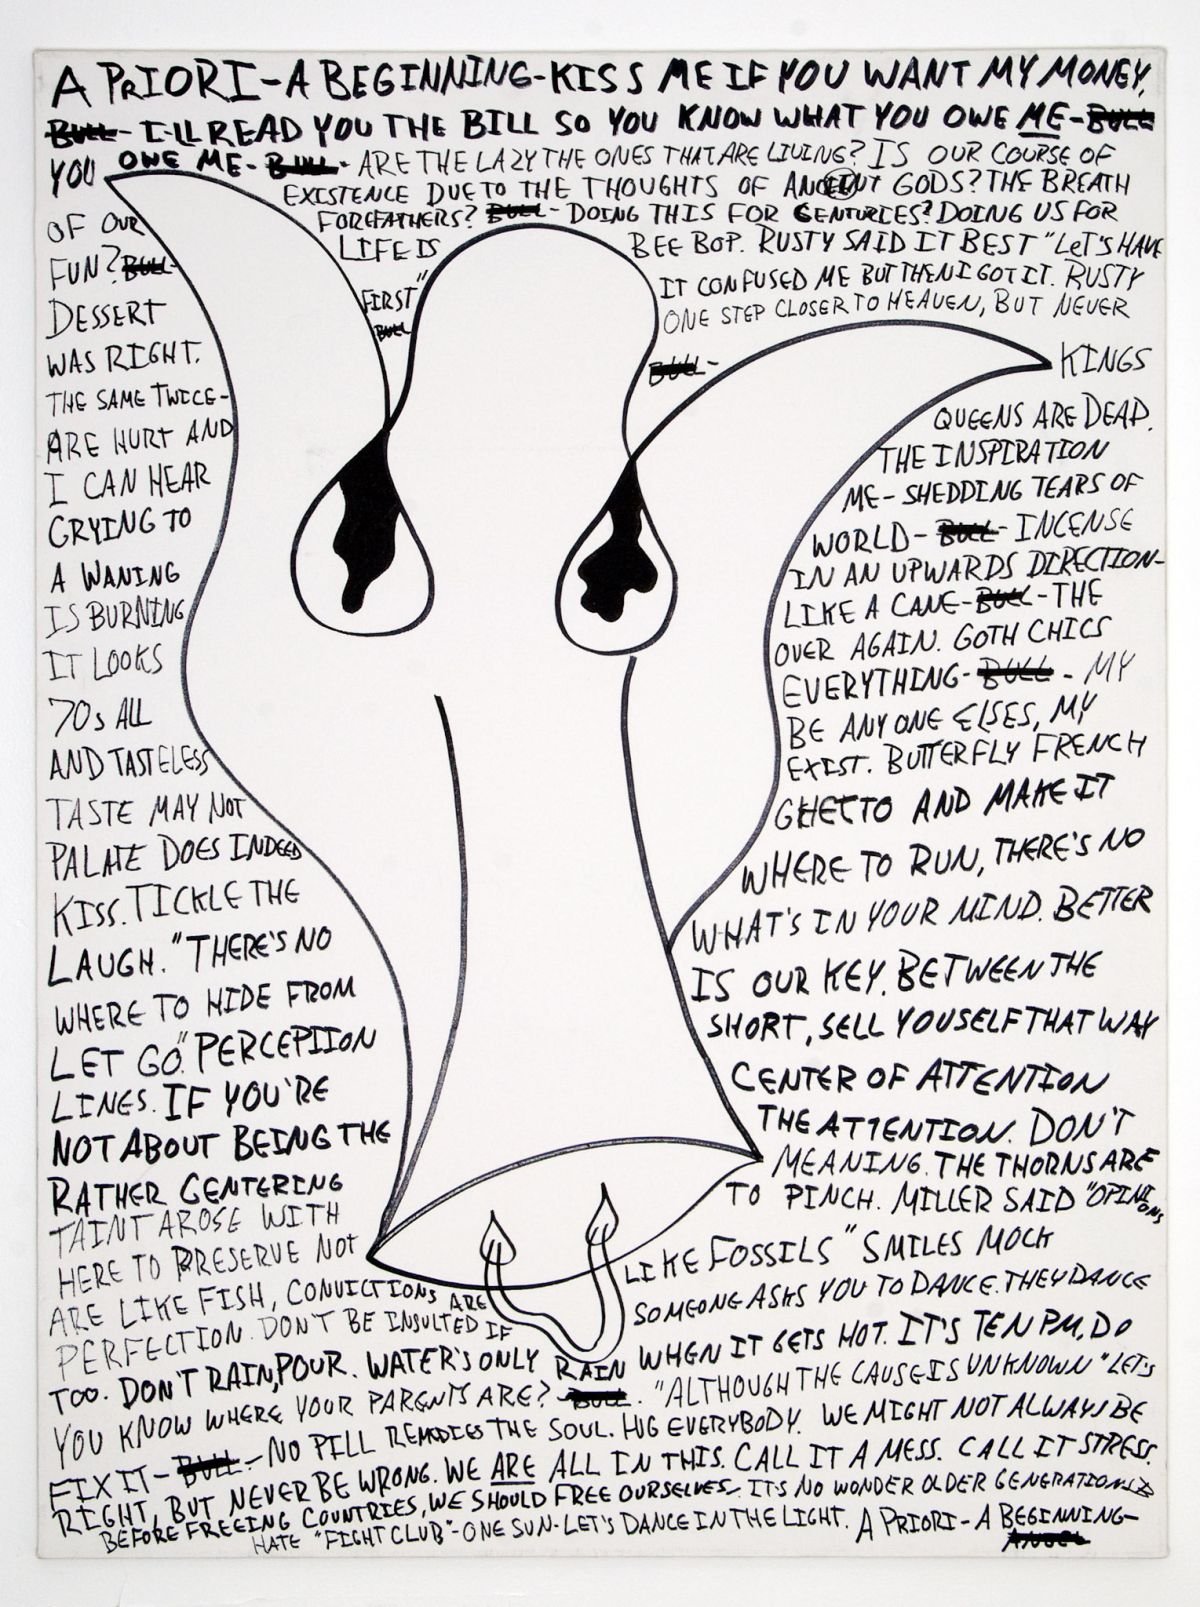 A PRIORI-A BEGINNING-KISS ME IF YOU WANT MY MONEY,
BULL-I'LL READ YOU THE BILL SO YOU KNOW WHAT YOU OWE ME-BULL
YOU OWE ME-BULL-ARE THE LAZY THE ONES THAT ARE LIVING? IS OUR COURSE OF
EXISTENCE DUE TO THE THOUGHTS OF ANCIENT GODS? THE BREATH
OF OUR FOREFATHERS? BULL-DOING THIS FOR CENTURIES? DOING US FOR
FUN? BULL- LIFE IS BEE BOP. RUSTY SAID IT BEST "LET'S HAVE
DESSERT FIRST" IT CONFUSED ME BUT THEN I GOT IT. RUSTY
WAS RIGHT. BULL ONE STEP CLOSER TO HEAVEN, BUT NEVER
THE SAME TWICE- BULL- KINGS
ARE HURT AND QUEENS ARE DEAD.
I CAN HEAR THE INSPIRATION
CRYING TO ME-SHEDDING TEARS OF
A WANING WORLD-BULL-INCENSE
IS BURNING IN AN UPWARDS DIRECTION-
IT LOOKS LIKE A CANE-BULL-THE
70s ALL OVER AGAIN. GOTH CHICS
AND TASTELESS EVERYTHING-BULL-MY
TASTE MAY NOT BE ANYONE ELSES, MY
PALATE DOES INDEED EXIST. BUTTERFLY FRENCH
KISS. TICKLE THE GHETTO AND MAKE IT
LAUGH. "THERE'S NO WHERE TO RUN, THERE'S NO
WHERE TO HIDE FROM WHAT'S IN YOUR MIND. BETTER
LET GO." PERCEPTION IS OUR KEY. BETWEEN THE
LINES. IF YOU'RE SHORT, SELL YOUSELF THAT WAY
NOT ABOUT BEING THE CENTER OF ATTENTION
RATHER CENTERING THE ATTENTION. DON'T
TAINT A ROSE WITH MEANING. THE THORNS ARE
HERE TO PRESERVE NOT TO PINCH. MILLER SAID "OPINIONS
ARE LIKE FISH, CONVICTIONS ARE LIKE FOSSILS" SMILES MOCK
PERFECTION. DON'T BE INSULTED IF SOMEONE ASKS YOU TO DANCE. THEY DANCE
TOO. DON'T RAIN, POUR. WATER'S ONLY RAIN WHEN IT GETS HOT. IT'S TEN PM, DO
YOU KNOW WHERE YOUR PARENTS ARE? BULL. "ALTHOUGH THE CAUSE IS UNKNOWN" LET'S
FIX IT-BULL-NO PILL REMEDIES THE SOUL. HUG EVERYBODY. WE MIGHT NOT ALWAYS BE
RIGHT, BUT NEVER BE WRONG. WE ARE ALL IN THIS. CALL IT A MESS. CALL IT STRESS.
BEFORE FREEING COUNTRIES, WE SHOULD FREE OURSELVES. IT'S NO WONDER OLDER GENERATIONS
HATE "FIGHT CLUB"-ONE SUN-LET'S DANCE IN THE LIGHT. A PRIORI-A BEGINNING-
ANGEL